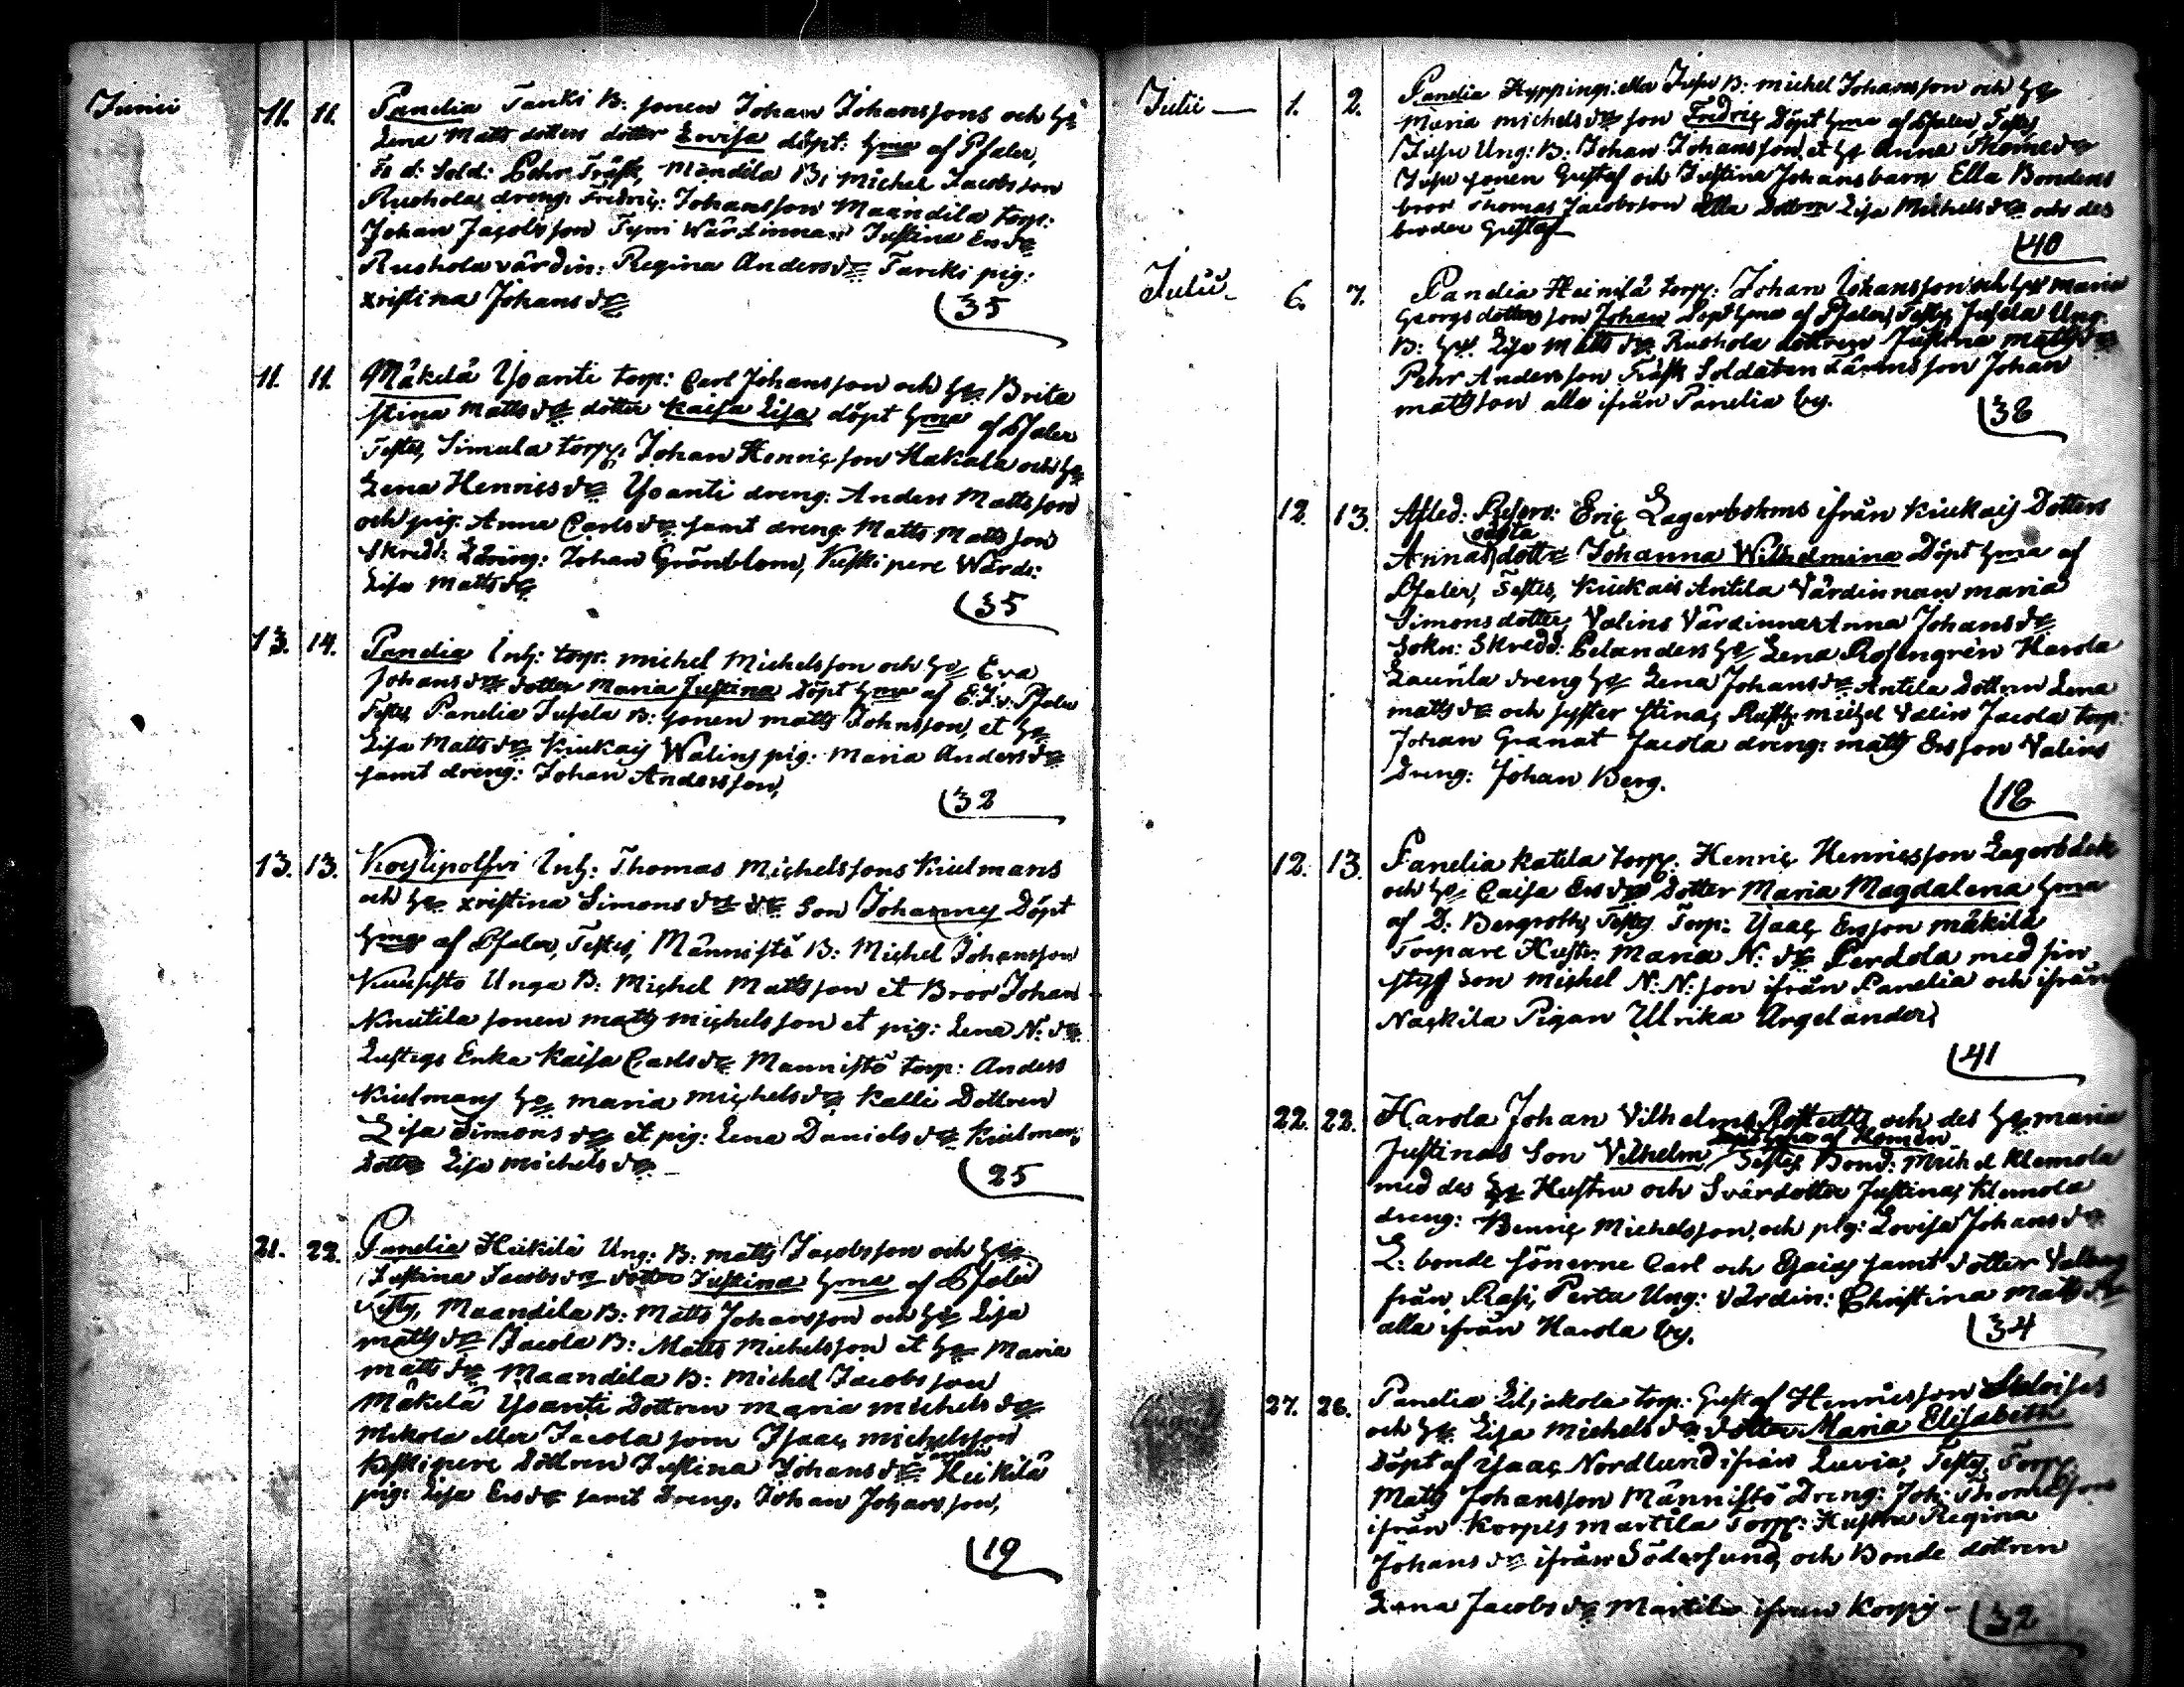 Junii 11. 11. Panelia Tanki B: sonen Johan Johanssons och H:
Lena Matts dotters dotter Lovisa döpt: Hma af Pfaler,
F. d: Sold: Pehr Träsk, Mandila B: Michel Jacobsson
Rushola dreng: Fredric: Johansson Maandila torp:
Johan Jacobsson Tyni Wärdinnan Justina Ersdr
Rushola värdin: Regina Andersdr Tancki pig:
xristina Johansdr
35
11. 11. Mäkelä Yvanti torp: Carl Johansson och H: Brita
stina Mattsdr dotter Kaisa Lisa döpt Hma af Pfaler
Testes, Simula torp: Johan Henricsson Hakala och H:
Lena Henricsdr Yvanti dreng: Anders Mattsson
och pig: Anna Carlsdr samt dreng Matts Mattsson
Skredd: Lärling: Johan Grönblom, Kuskipere Wärdi:
Lisa Mattsdr
35
13. 14. Panelia Inh: torp: Michel Michelsson och H: Eva
Johansdr dotter Maria Justina Döpt Hma af E. J. v: Pfaler
Testes, Panelia Jusela B: sonen Matts Johnsson, et H:
Lisa Mattsdr Kiukais Walins pig: Maria Andersdr
samt dreng: Johan Andersson,
32
13. 13. Köylipolfvi Inh: Thomas Michelssons Kiulmans
och H: xristina Simonsdr Son Johannes Döpt
Hma af Pfaler, Testes, Männistö B: Michel Johansson
Kuusisto Unga B: Michel Mattsson et Bror Johan
Knutila sonen Matts Michelsson et pig: Lena N: dr
Lustigs Enka Kaisa Carlsdr Mannistö torp: Anders
Kiulmans H: Maria Michelsdr Kalli Dottren
Lisa Simonsdr et pig: Lena Danielsdr Kiulmans
Dotter Lisa Michelsdr
25
21. 22. Panelia Heikilä Ung: B: Matts Jacobsson och H:
Justina Jacobsdr dotter Justina Hma af Pfaler
Testes, Maandila B: Matts Johansson och H: Lisa
Mattsdr Jacola B: Matts Michelsson et H: Maria
Mattsdr Maandila B: Michel Jacobsson
Mäkelä Yvanti Dottren Maria Michelsdr
Mikola eller Jacola son Isaac Michelsson
Kuskipere Dottren Justina Johansdr Heikilä
pig: Lisa Ersdr samt Dreng: Johan Johansson,
19
Julii 1. 2. Panelia Hyppingi eller Jusu B: Michel Johansson och H:
Maria Michelsdr son Fredric Döpt Hma af Pfaler, Testes,
Jusu Ung: B: Johan Johansson et H: Anna Thomedr
Jusu sonen Gustaf och Justina Johansbarn Ella Bondens
bror Thomas Jacobsson Ella Dottren Lisa Michelsdr och des
broder Gustaf
40
Julii 6. 7. Panelia Heinilä torp: Johan Johansson och H: Maria
Georgsdotters son Johan Döpt Hma af Pfaler, Testes, Jusela Ung:
B: H: Lisa Mattsdr Rushola dottren Justina Mattsdr
Pehr Andersson Träsk Soldaten Färms son Johan
Mattsson alla ifrån Panelia by.
38
12. 13. Afled: Reserv: Eric Lagerboms ifrån Kiukais Dotters
Annas oägta dotter Johanna Wilhelmina Döpt Hma af
Pfaler, Testes, Kiukais Antila Värdinnan Maria
Simonsdotter, Valins Värdinna Anna Johansdr
Sokn: Skredd: Pelanders H: Lena Rosengren Harola
Laurila dreng H: Lena Johansdr Antila Dottren Lena
Mattsdr och syster Stina, Rusth: Michel Valin Jacola torp:
Johan Granat Jacola dreng: Matts Ersson Valins
Dreng: Johan Berg.
18
12. 13. Panelia Katila torp: Henric Henricsson Lagerbäck
och H: Caisa Ersdr Dotter Maria Magdalena Hma
af D. Bergroth, Testes Torp: Ysaac Ersson Mäkilä
Torpare Hustr: Maria N: dr Perdola med sin
styf son Michel N: N: son ifrån Panelia och ifrån
Naskila Pigan Ulrika Argelander,
41
22. 22. Harola Johan Vilhelms Rostedts och des H: Maria
Justinas Son Vilhelm döpt Hma af Homèn Testes Bond: Michel Klemola
med des Hustru och Svärdotter Justina, Klemola
dreng: Henric Michelsson, och pig: Lovisa Johansdr
L: bonde sönerne Carl och Esaias samt dotter Valborg
från Rasi, Perta Ung: värdin: Christina Mattsdr
alla ifrån Harola by.
34
August 27. 28. Panelia Liljakola torp: Gustaf Henricsson
och H: Lisa Michelsdr dotter Maria Elisabeth
Döpt af Ysaac Nordlund ifrån Luvia, Testes, Torp:
Matts Johansson Männistö Dreng: Joh: Thomasson
ifrån Korpis Martila Torp: Hustru Regina
Johansdr ifrån Södersund, och Bonde dottren
Lena Jacobsdr Martila ifrån Korpis
32